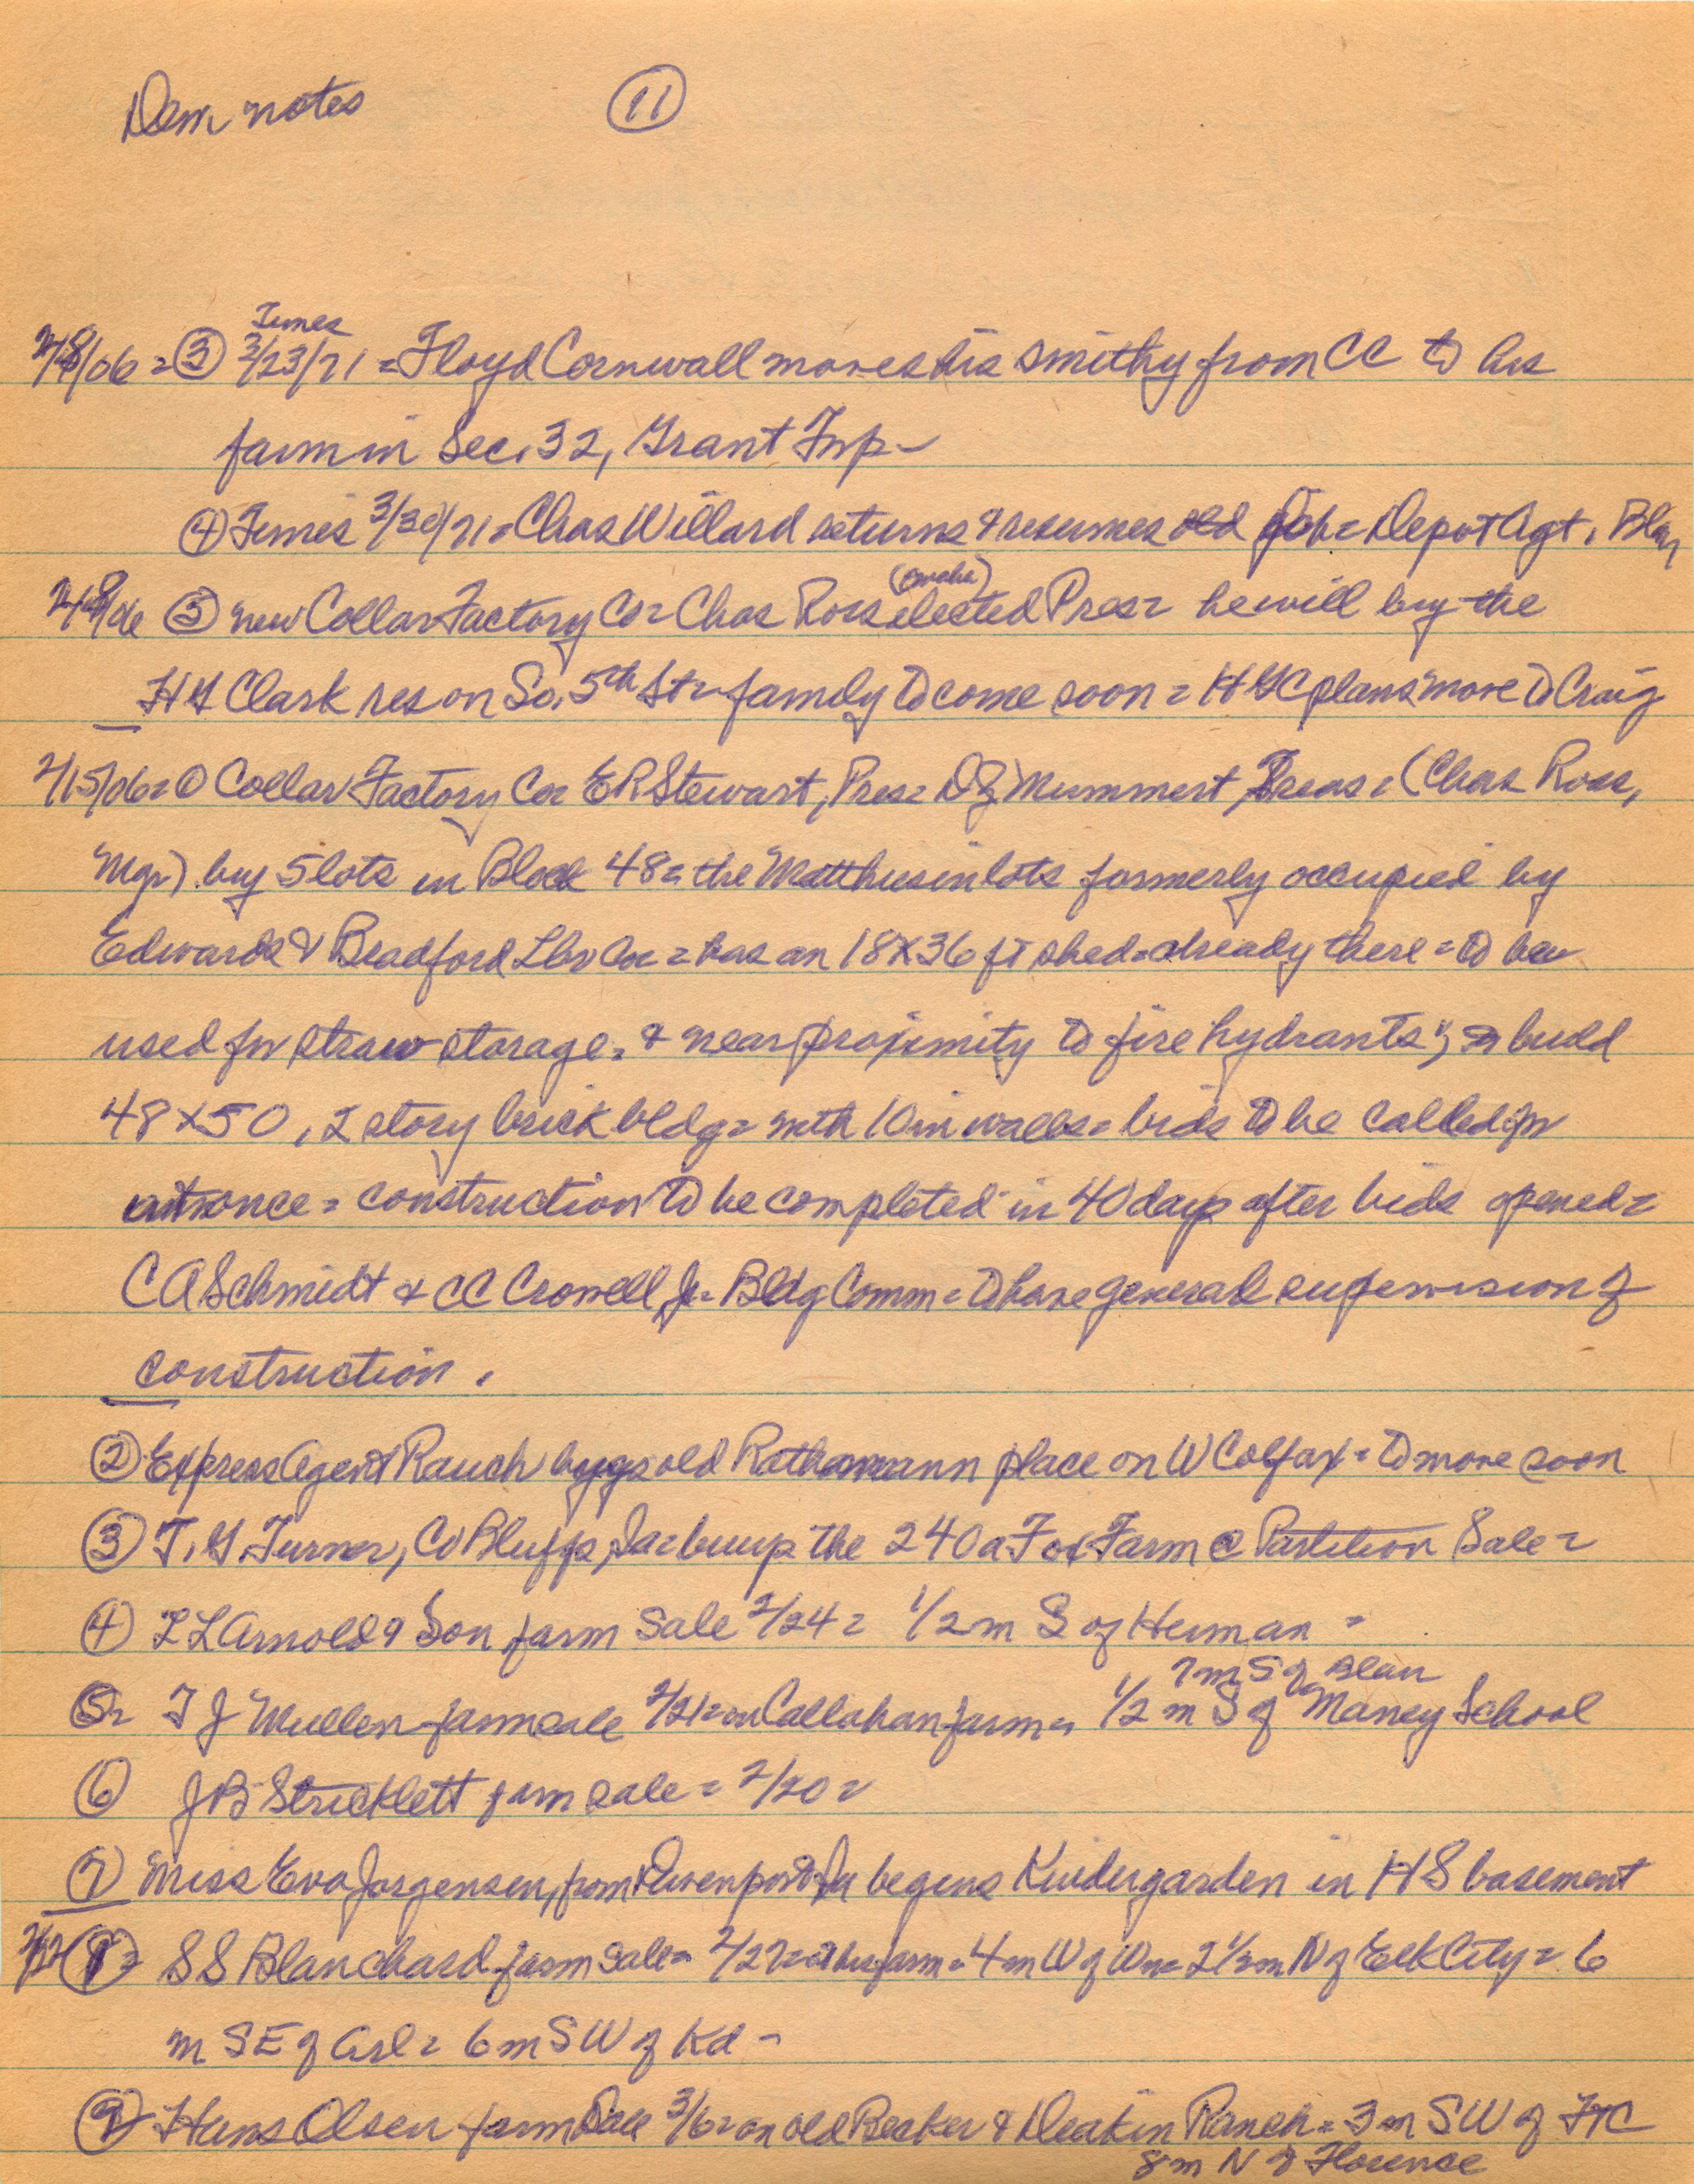 Dem notes (11)
2/8/06 = (3) Times 3/23/71 = Floyd Cornwall moves his smithy from CC to his
farm in Sec. 32, Grant Twp -
(4) Times 3/30/71 = Chas Willard returns & resumes old job = Depot Agt, Blair
2/8/06 (5) new Collar Factory Co = Chas Ross (Omaha) elected Pres = he will buy the
H G Clark res on So. 5th St = family to come soon = HGC plans move to Craig
2/15/06 = (1) Collar Factory Co = E R Stewart, Pres = D Z Mummert, Treas = (Chas Ross,
Mgr) buy 5 lots in Block 48 = the Matthiesen lots formerly occupied by
Edwards & Bradford Lbr Co = has an 18 x 36 ft shed = already there = to be
used for straw storage. & "near proximity to fire hydrants"; build
48 x 50, 2 story brick bldg = with 10 in walls = bids to be called for
at once = construction to be completed in 40 days after bids opened =
C A Schmidt & CC Crowell Jr = Bldg Comm = to have general supervision of
construction.
(2) Express Agent Rauch buys old Rathmann place on W Colfax = to move soon
(3) T. G. Turner, Co Bluffs, Ia = buys the 240 a Fox Farm @ Partition Sale =
(4) L L Arnold & Son farm Sale 2/24 = 1/2 m S of Herman =
(5) = T J Mullen farm sale 2/21 = on Callahan farm = 1/2 m S of Maney School
7 m S of Blair
(6) J B Stricklett farm sale = 2/20 =
(7) Miss Eva Jorgensen, from Davenport Ia begins Kindergarden in HS basement
(8) = S S Blanchard farm sale = 2/27 = @ his farm = 4 m W of Wn = 2 1/2 m N of Elk City = 6
m SE of Arl = 6 m SW of Kd -
(9) Hans Olsen farm Sale 3/6 = on old Becker & Deakin Ranch = 3 m SW of FtC
8 m N of Florence